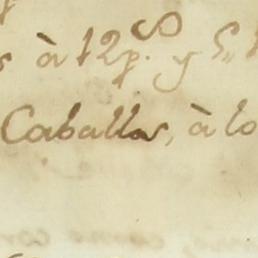 à 12 p.s y 5
Caballos, à lo